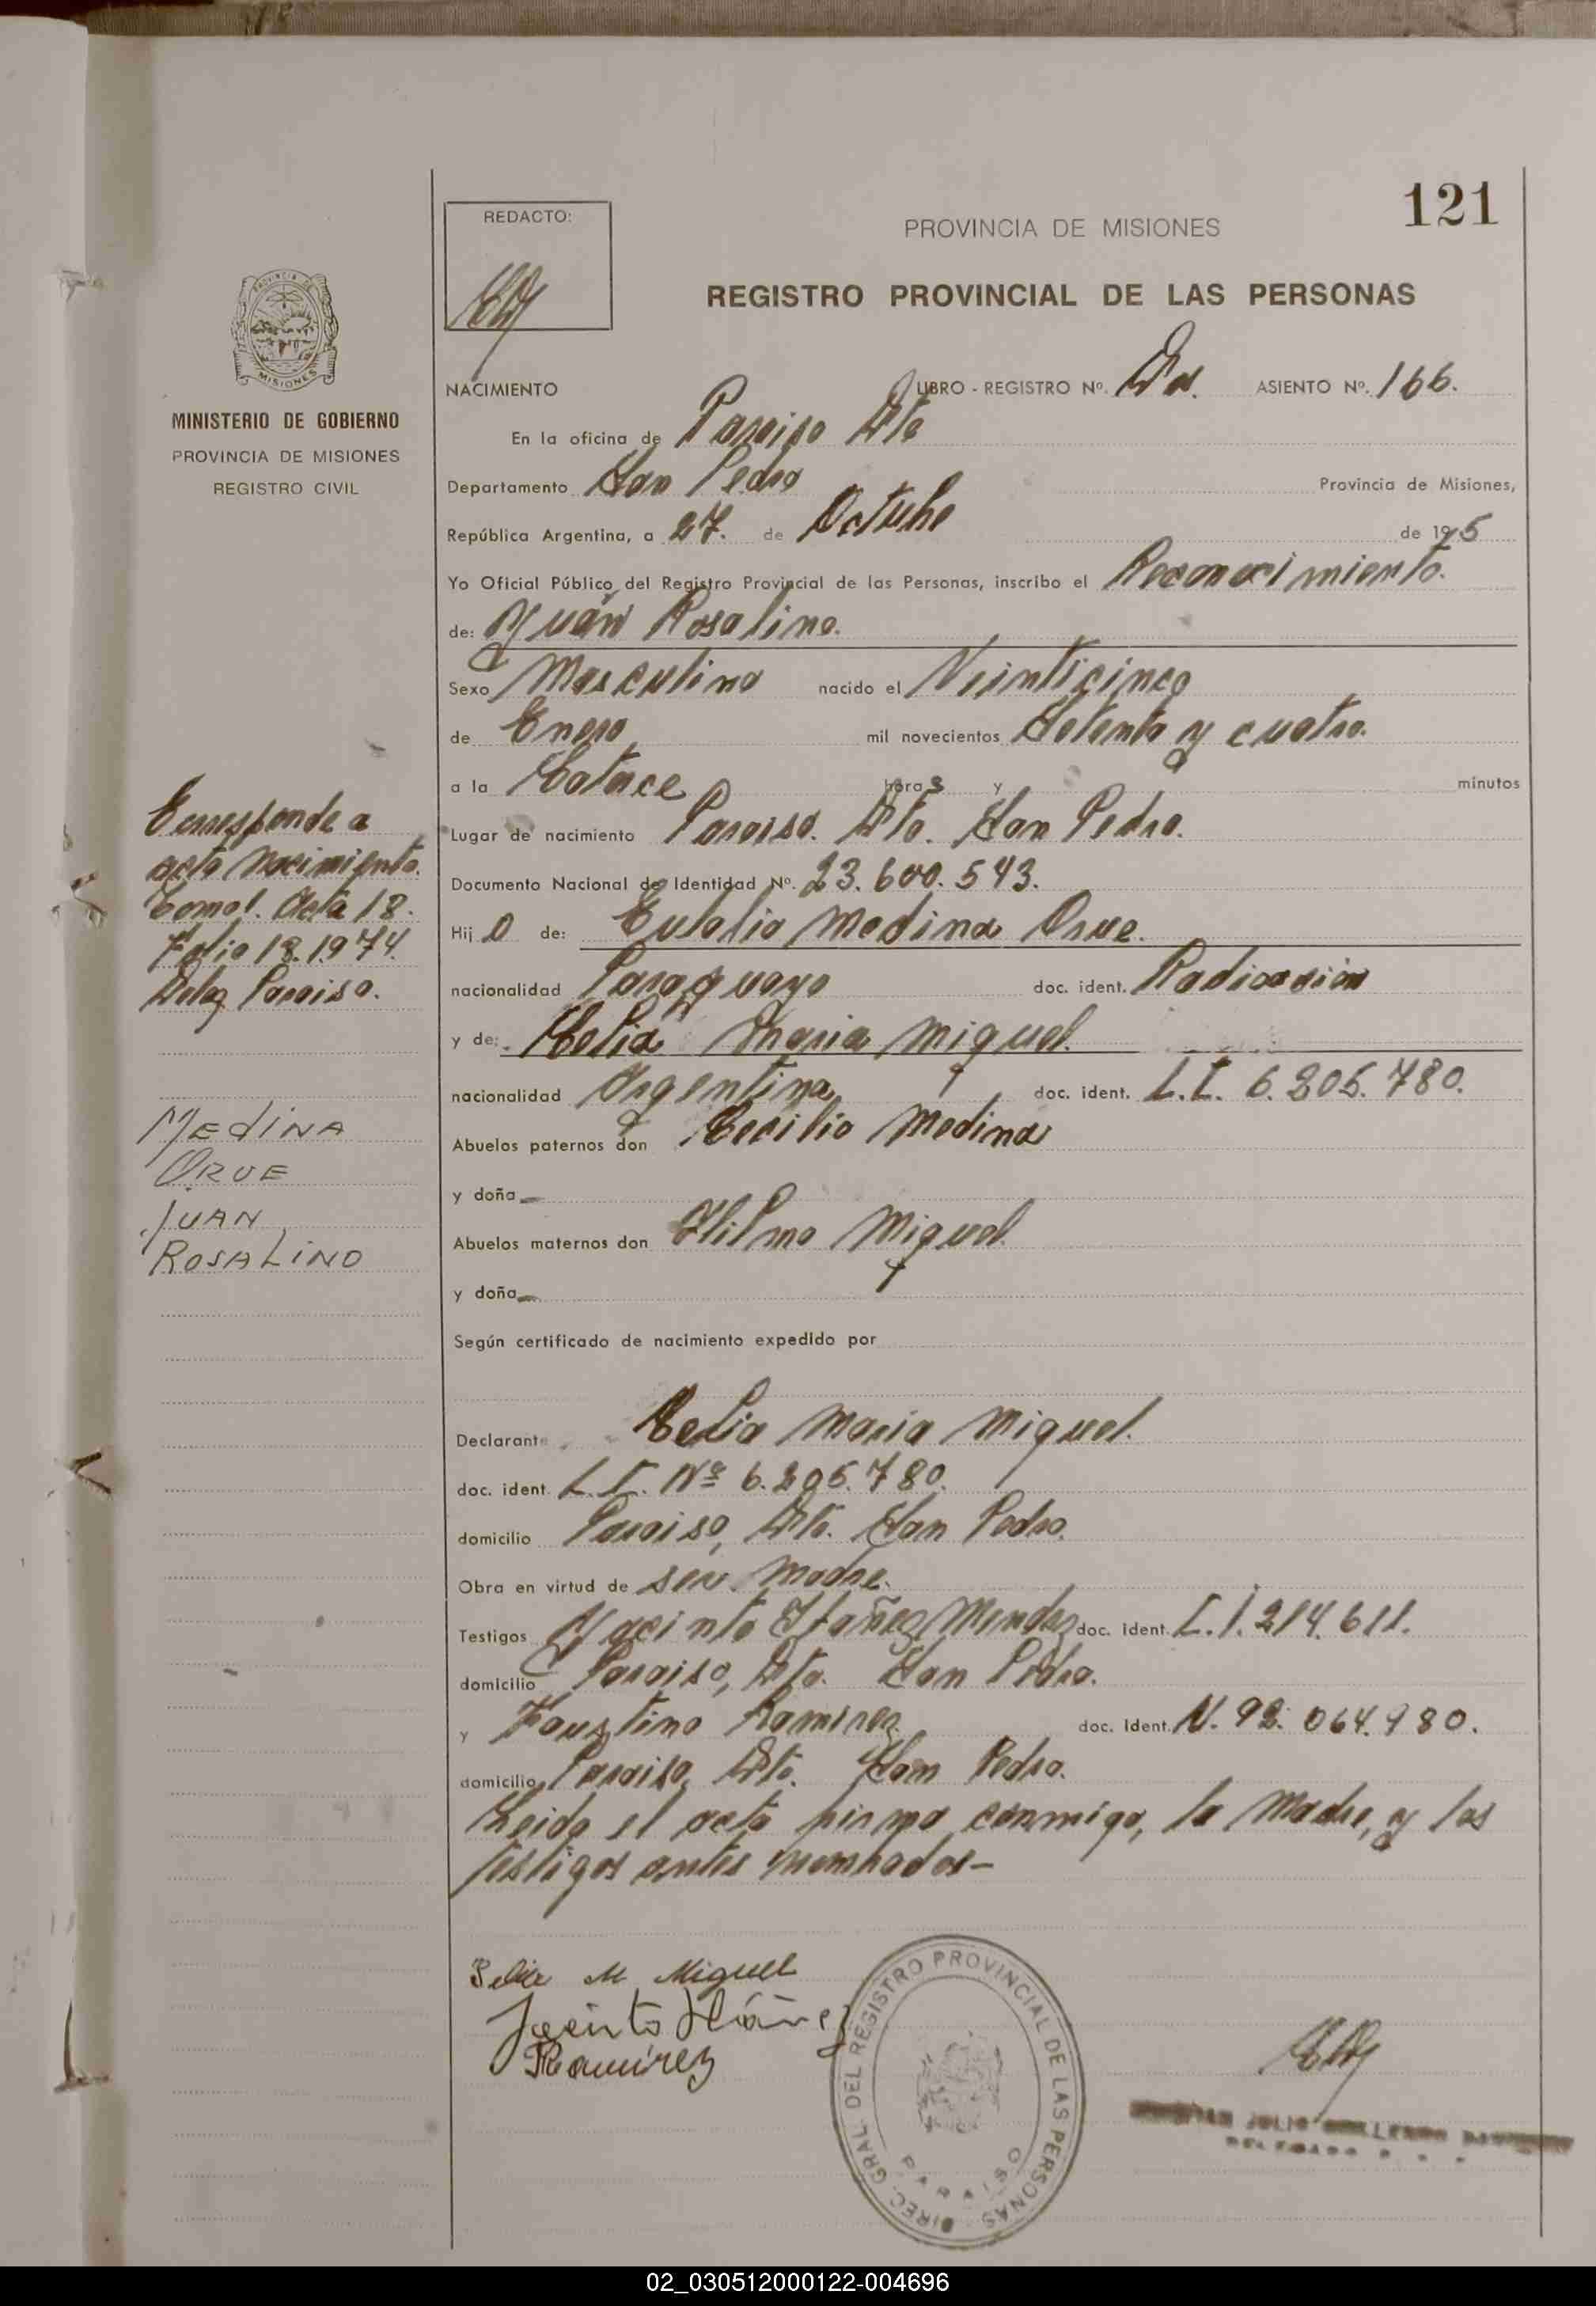 121
REDACTO:
PROVINCIA DE MISIONES
REGISTRO PROVINCIAL DE LAS PERSONAS
NACIMIENTO LIBRO - REGISTRO Nº. ASIENTO Nº. 166.
MINISTERIO DE GOBIERNO
PROVINCIA DE MISIONES
REGISTRO CIVIL
En la oficina de Paraiso Dto
Departamento San Pedro Provincia de Misiones,
República Argentina, a 27. de Octubre de 1975
Yo Oficial Público del Registro Provincial de las Personas, inscribo el Reconocimiento.
de: Juan Rosalino.
Sexo Masculino nacido el Veinticinco
de Enero mil novecientos Setenta y cuatro.
a la Catorce horas y minutos
Lugar de nacimiento Paraiso. Dto. San Pedro.
Documento Nacional de Identidad Nº. 23.600.543.
Hijo de: Eulalio Medina Orue.
nacionalidad Paraguayo doc. ident. Radicación
y de: Celia Maria Miguel.
nacionalidad Argentina doc. ident. L.I. 6.205.780.
Abuelos paternos don Cecilio Medina
y doña —
Abuelos maternos don Miguel
y doña —
Según certificado de nacimiento expedido por
Declarante Celia Maria Miguel.
doc. ident. L.I. Nº 6.205.780.
domicilio Paraiso, Dto. San Pedro.
Obra en virtud de ser Madre.
Testigos Jacinto Ibañez Mendez doc. ident. C.I. 214.611.
domicilio Paraiso, Dto. San Pedro.
y Faustino Ramirez doc. Ident. N. 92.064.980.
domicilio Paraiso, Dto. San Pedro.
Leido el acta firma conmigo, la Madre, y los
testigos antes nombrados—
Corresponde a
acta Nacimiento.
Tomo 1. Acta 18.
Folio 18.1974.
Deleg Paraiso.
MEDINA
ORUE
JUAN
ROSALINO
Celia M Miguel
Jacinto Ibáñez
Ramirez
DIREC. GRAL. DEL REGISTRO PROVINCIAL DE LAS PERSONAS
PARAISO
02_030512000122-004696